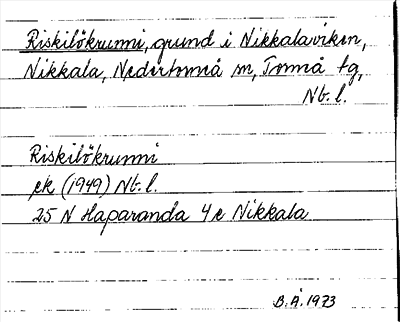 Riskilökrunni, grund i Nikkalaviken,
Nikkala, Nedertorneå sn, Torneå tg,
Nb. l.
Riskilökrunni
ek (1949) Nb. l.
25 N Haparanda 4 e Nikkala
B.Å. 1973